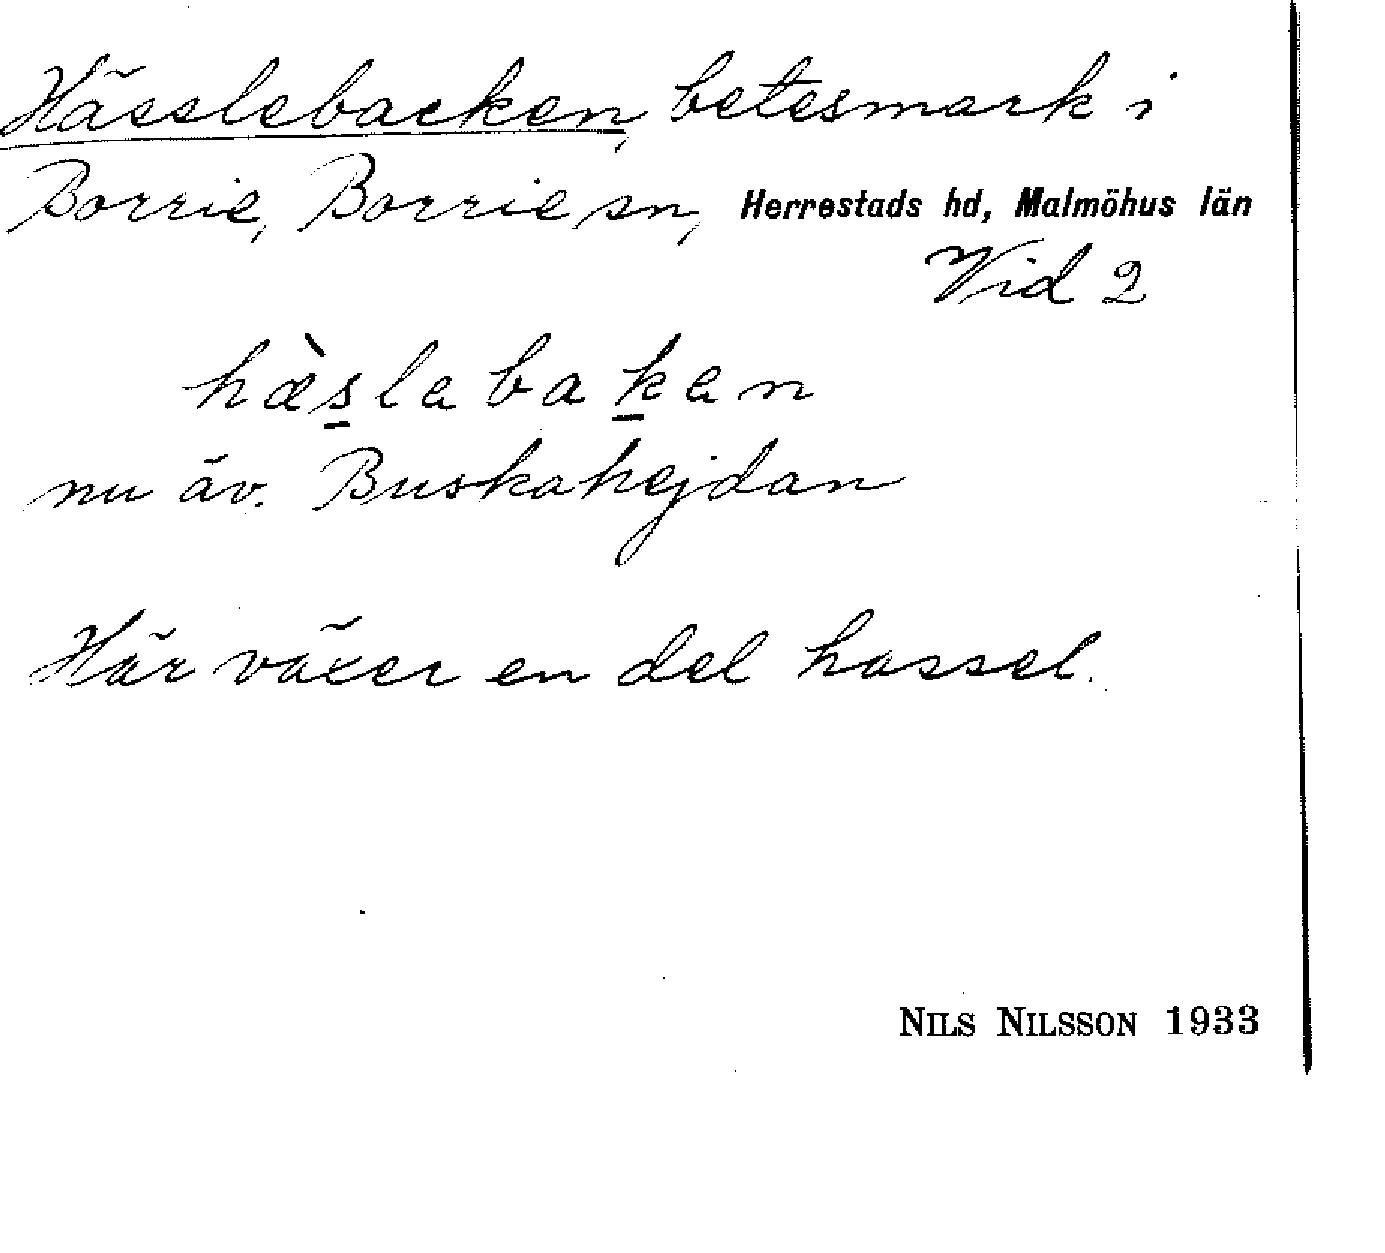 Hässlebacken, betesmark i
Borrie, Borrie sn, Herrestads hd, Malmöhus län
Vid 2
hæ̀s̲lebak̲en
nu äv. Buskahejdan
Här växer en del hassel.
NILS NILSSON 1933